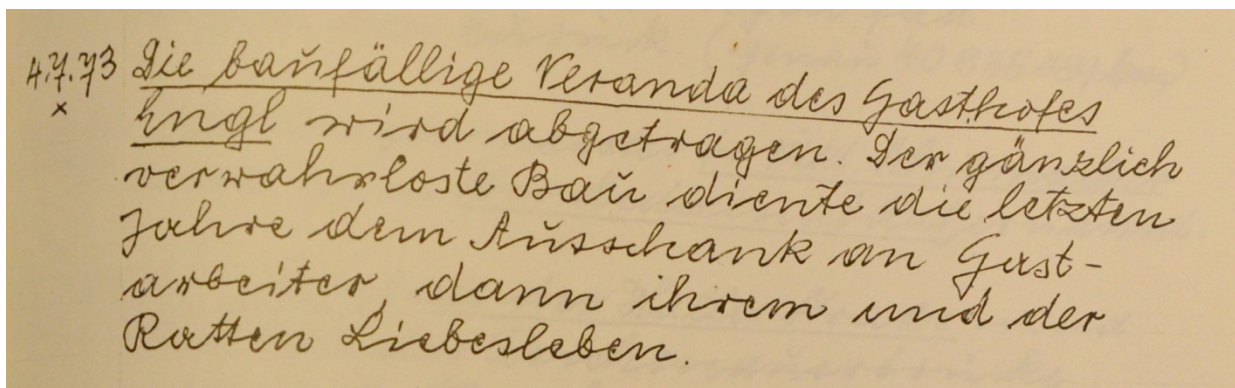 4.7.73 Die baufällige Veranda des Gasthofes
x Engl wird abgetragen. Der gänzlich
verwahrloste Bau diente die letzten
Jahre dem Ausschank an Gast-
arbeiter, dann ihrem und der
Ratten Liebesleben.